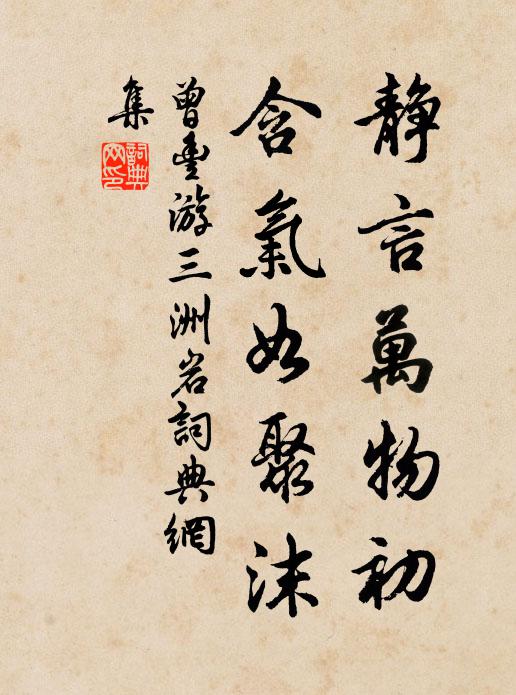 静言萬物初
含氣如聚沫
曾豐游三洲岩詞典網
集
詞典網印